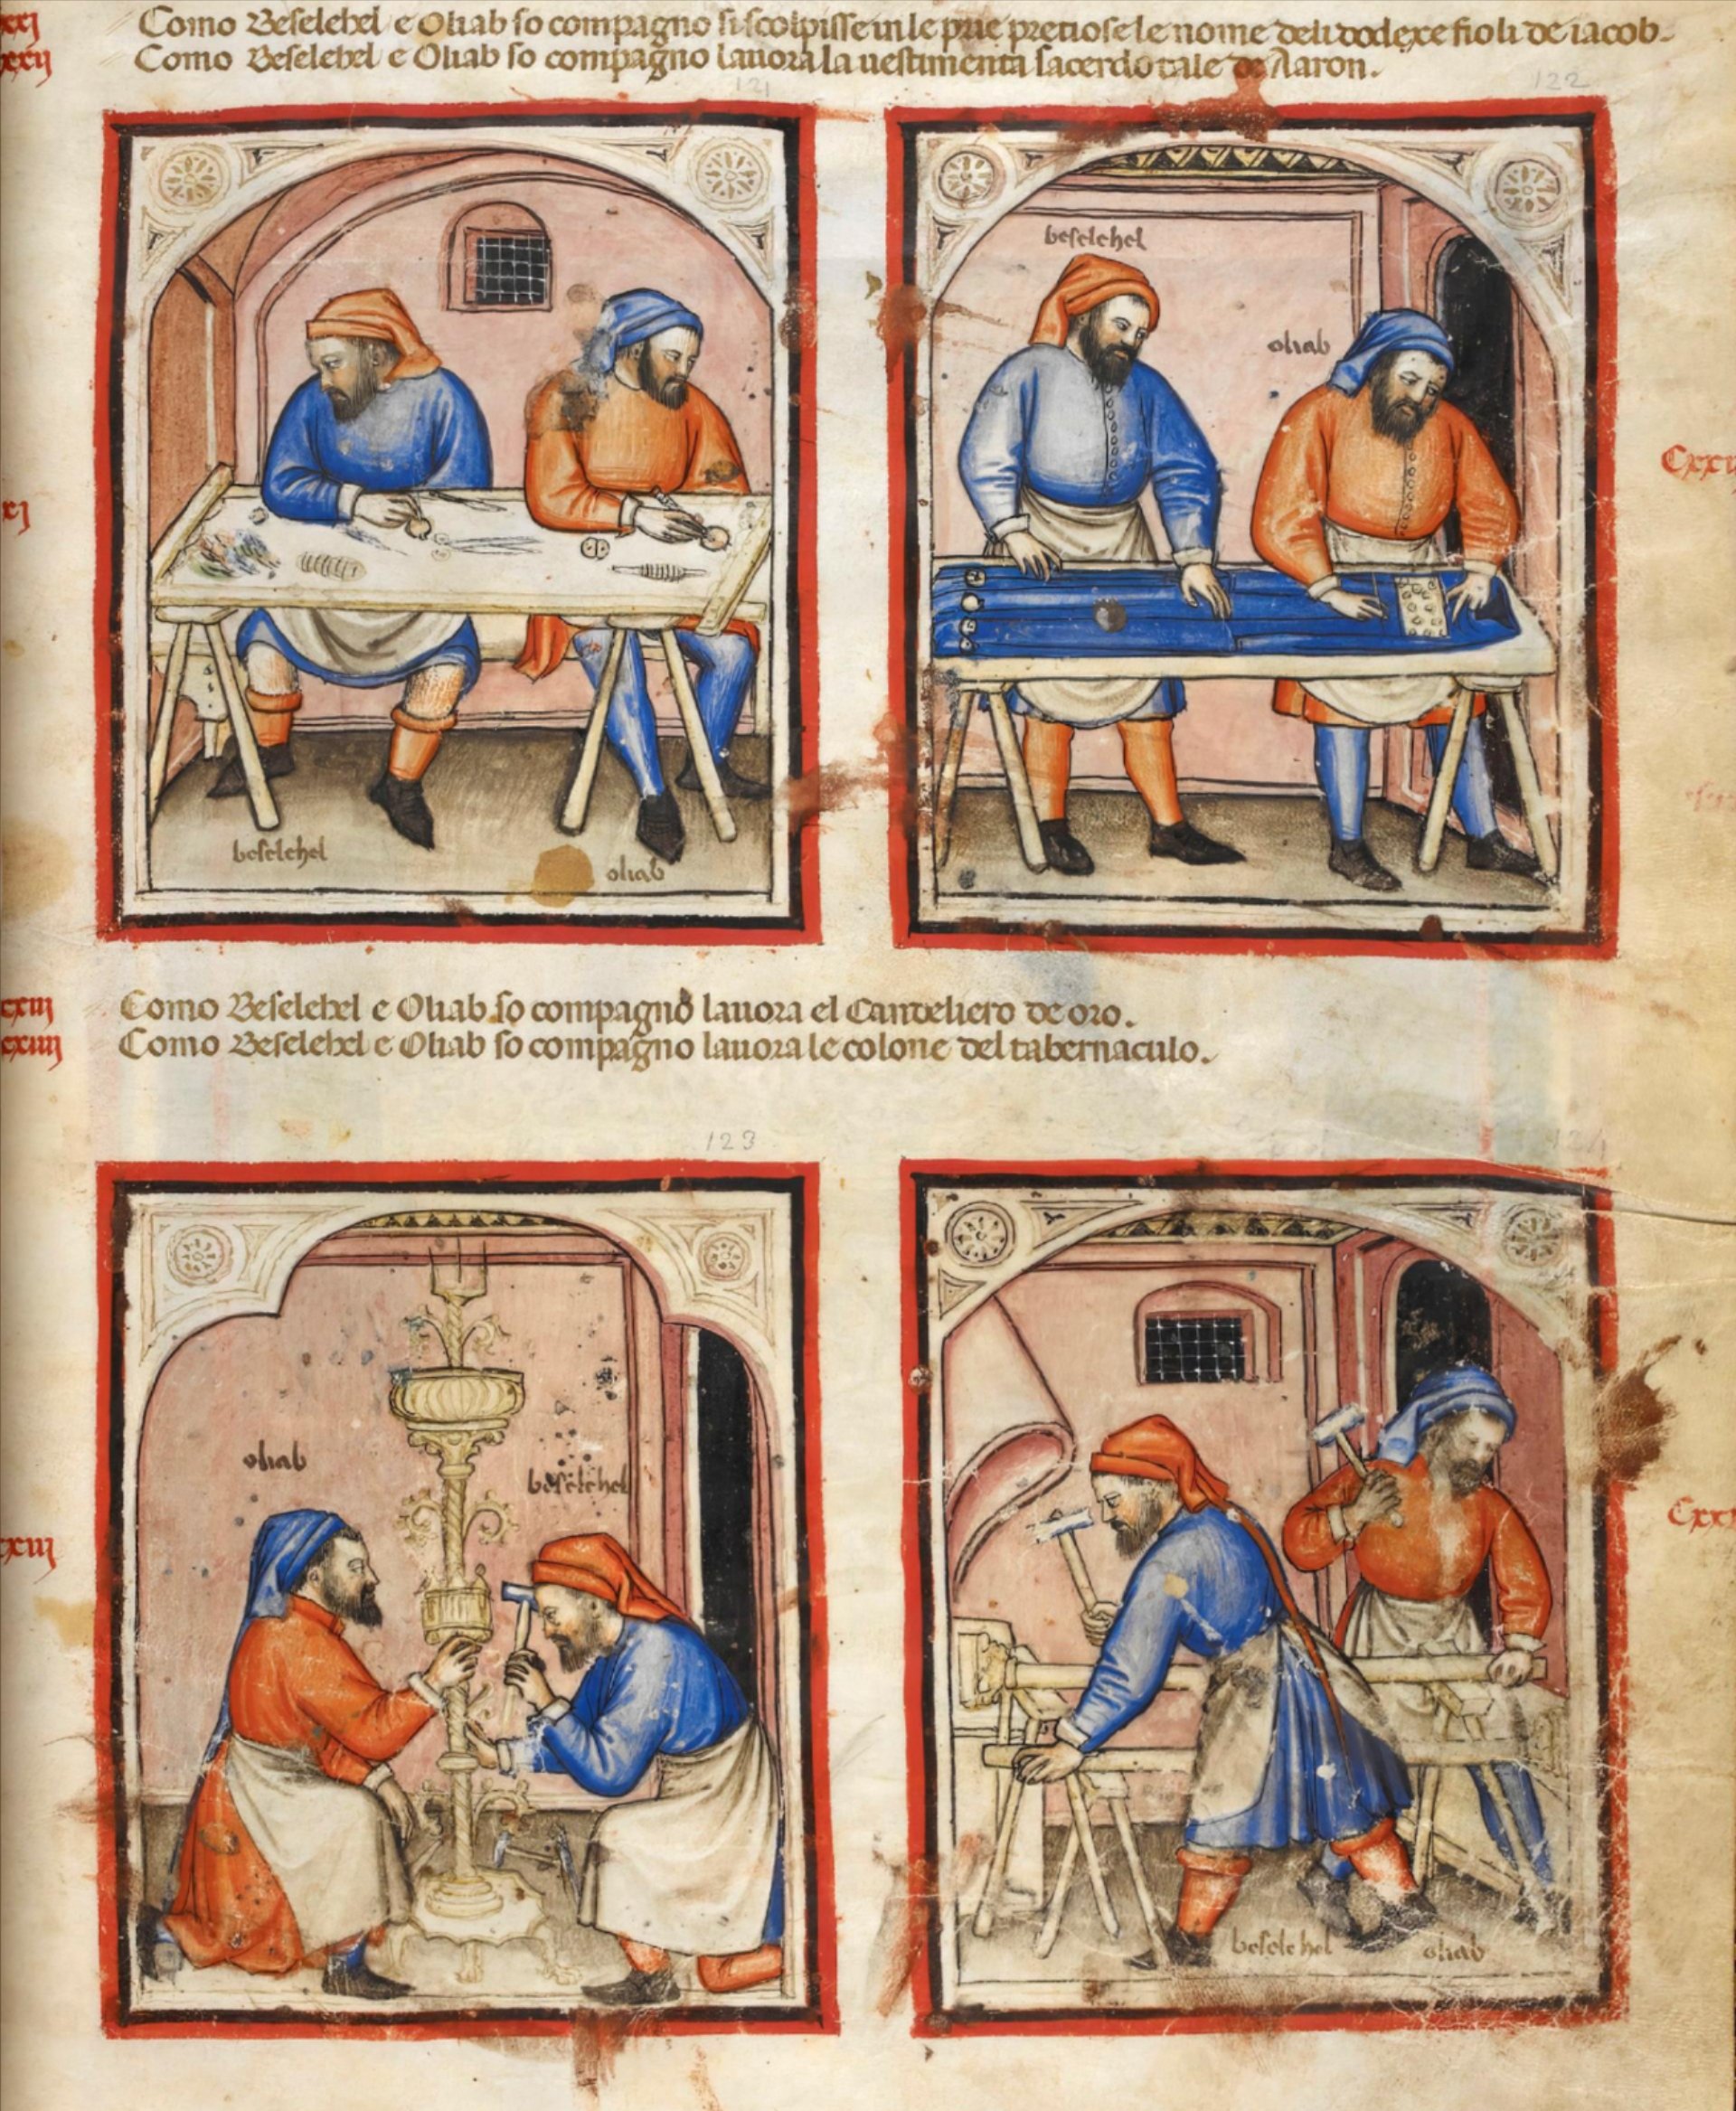 Como Beselehel e Oliab so compagno si scolpisse in le prie pretiose le nome deli dodexe fioli de iacob.
Como Beselehel e Oliab so compagno lauora la uestimenta sacerdotale de Aaron.
121
122
beselehel
oliab
beselehel
oliab
xi
Como Beselehel e Oliab so compagno lauora el Candeliero de oro.
Como Beselehel e Oliab so compagno lauora le colone del tabernaculo.
123
oliab
beselehel
beselehel
oliab